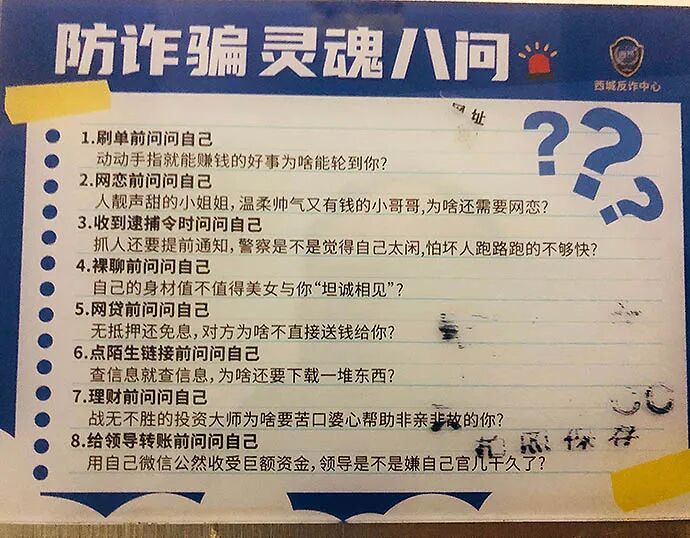 防诈骗 灵魂八问
西城反诈中心
网址
1.刷单前问问自己
动动手指就能赚钱的好事为啥能轮到你?
2.网恋前问问自己
人靓声甜的小姐姐，温柔帅气又有钱的小哥哥,为啥还需要网恋?
3.收到逮捕令时问问自己
抓人还要提前通知，警察是不是觉得自己太闲,怕坏人跑路跑的不够快?
4.裸聊前问问自己
自己的身材值不值得美女与你“坦诚相见”?
5.网贷前问问自己
无抵押还免息，对方为啥不直接送钱给你?
6.点陌生链接前问问自己
查信息就查信息，为啥还要下载一堆东西?
7.理财前问问自己
战无不胜的投资大师为啥要苦口婆心帮助非亲非故的你?
8.给领导转账前问问自己
拍照保存
用自己微信公然收受巨额资金，领导是不是嫌自己官儿干久了?
???